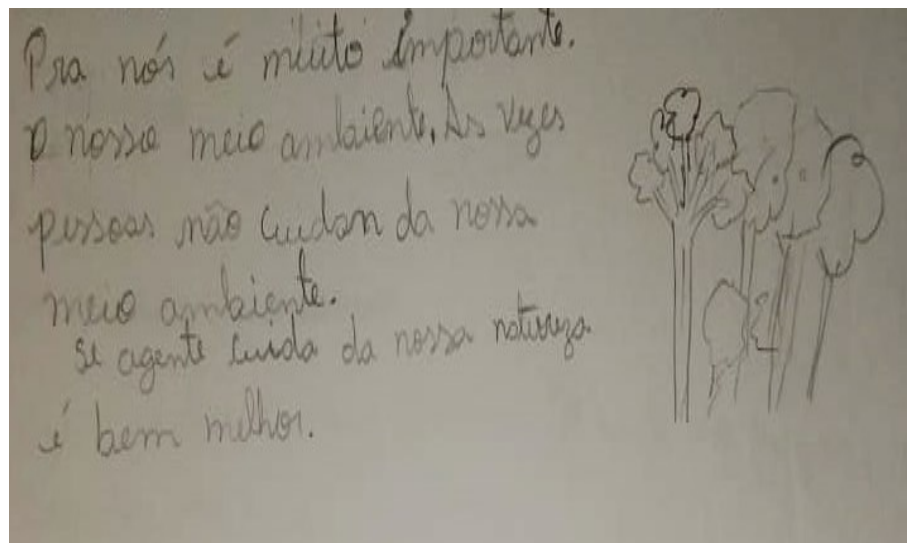 Pra nós é muito importante.
O nosso meio ambiente. Às vezes
pessoas não cuidan da nossa
meio ambiente.
Se agente cuida da nossa natureza
é bem melhor.